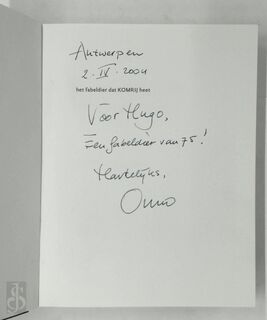 Antwerpen
2.IV.2004
het fabeldier dat KOMRIJ heet
Voor Hugo,
Een fabeldier van 75!
Hartelijks,
Onno